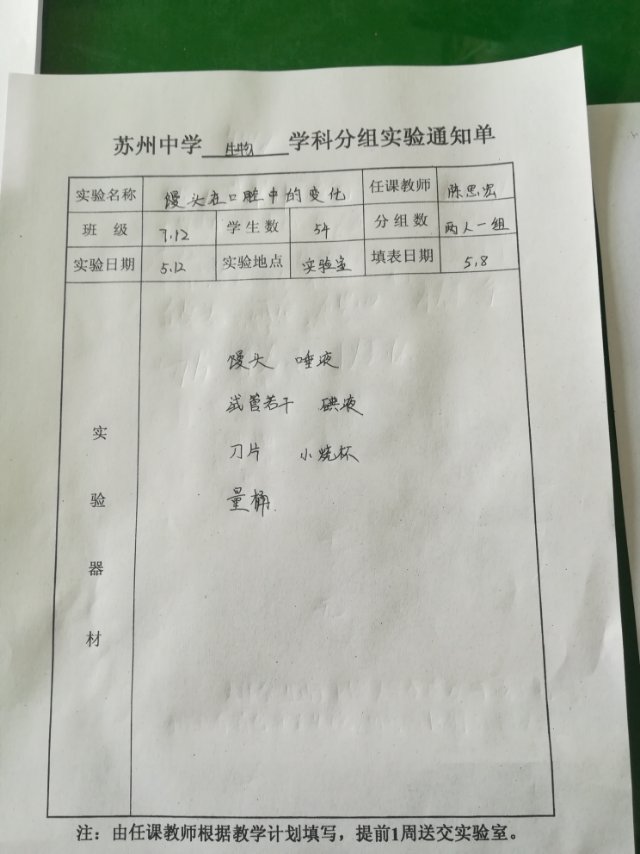 苏州中学 生物 学科分组实验通知单
实验名称 馒头在口腔中的变化 任课教师 陈思宏
班级 7.12 学生数 54 分组数 两人一组
实验日期 5.12 实验地点 实验室 填表日期 5.8
实验器材
馒头 唾液
试管若干 碘液
刀片 小烧杯
量桶
注：由任课教师根据教学计划填写，提前1周送交实验室。